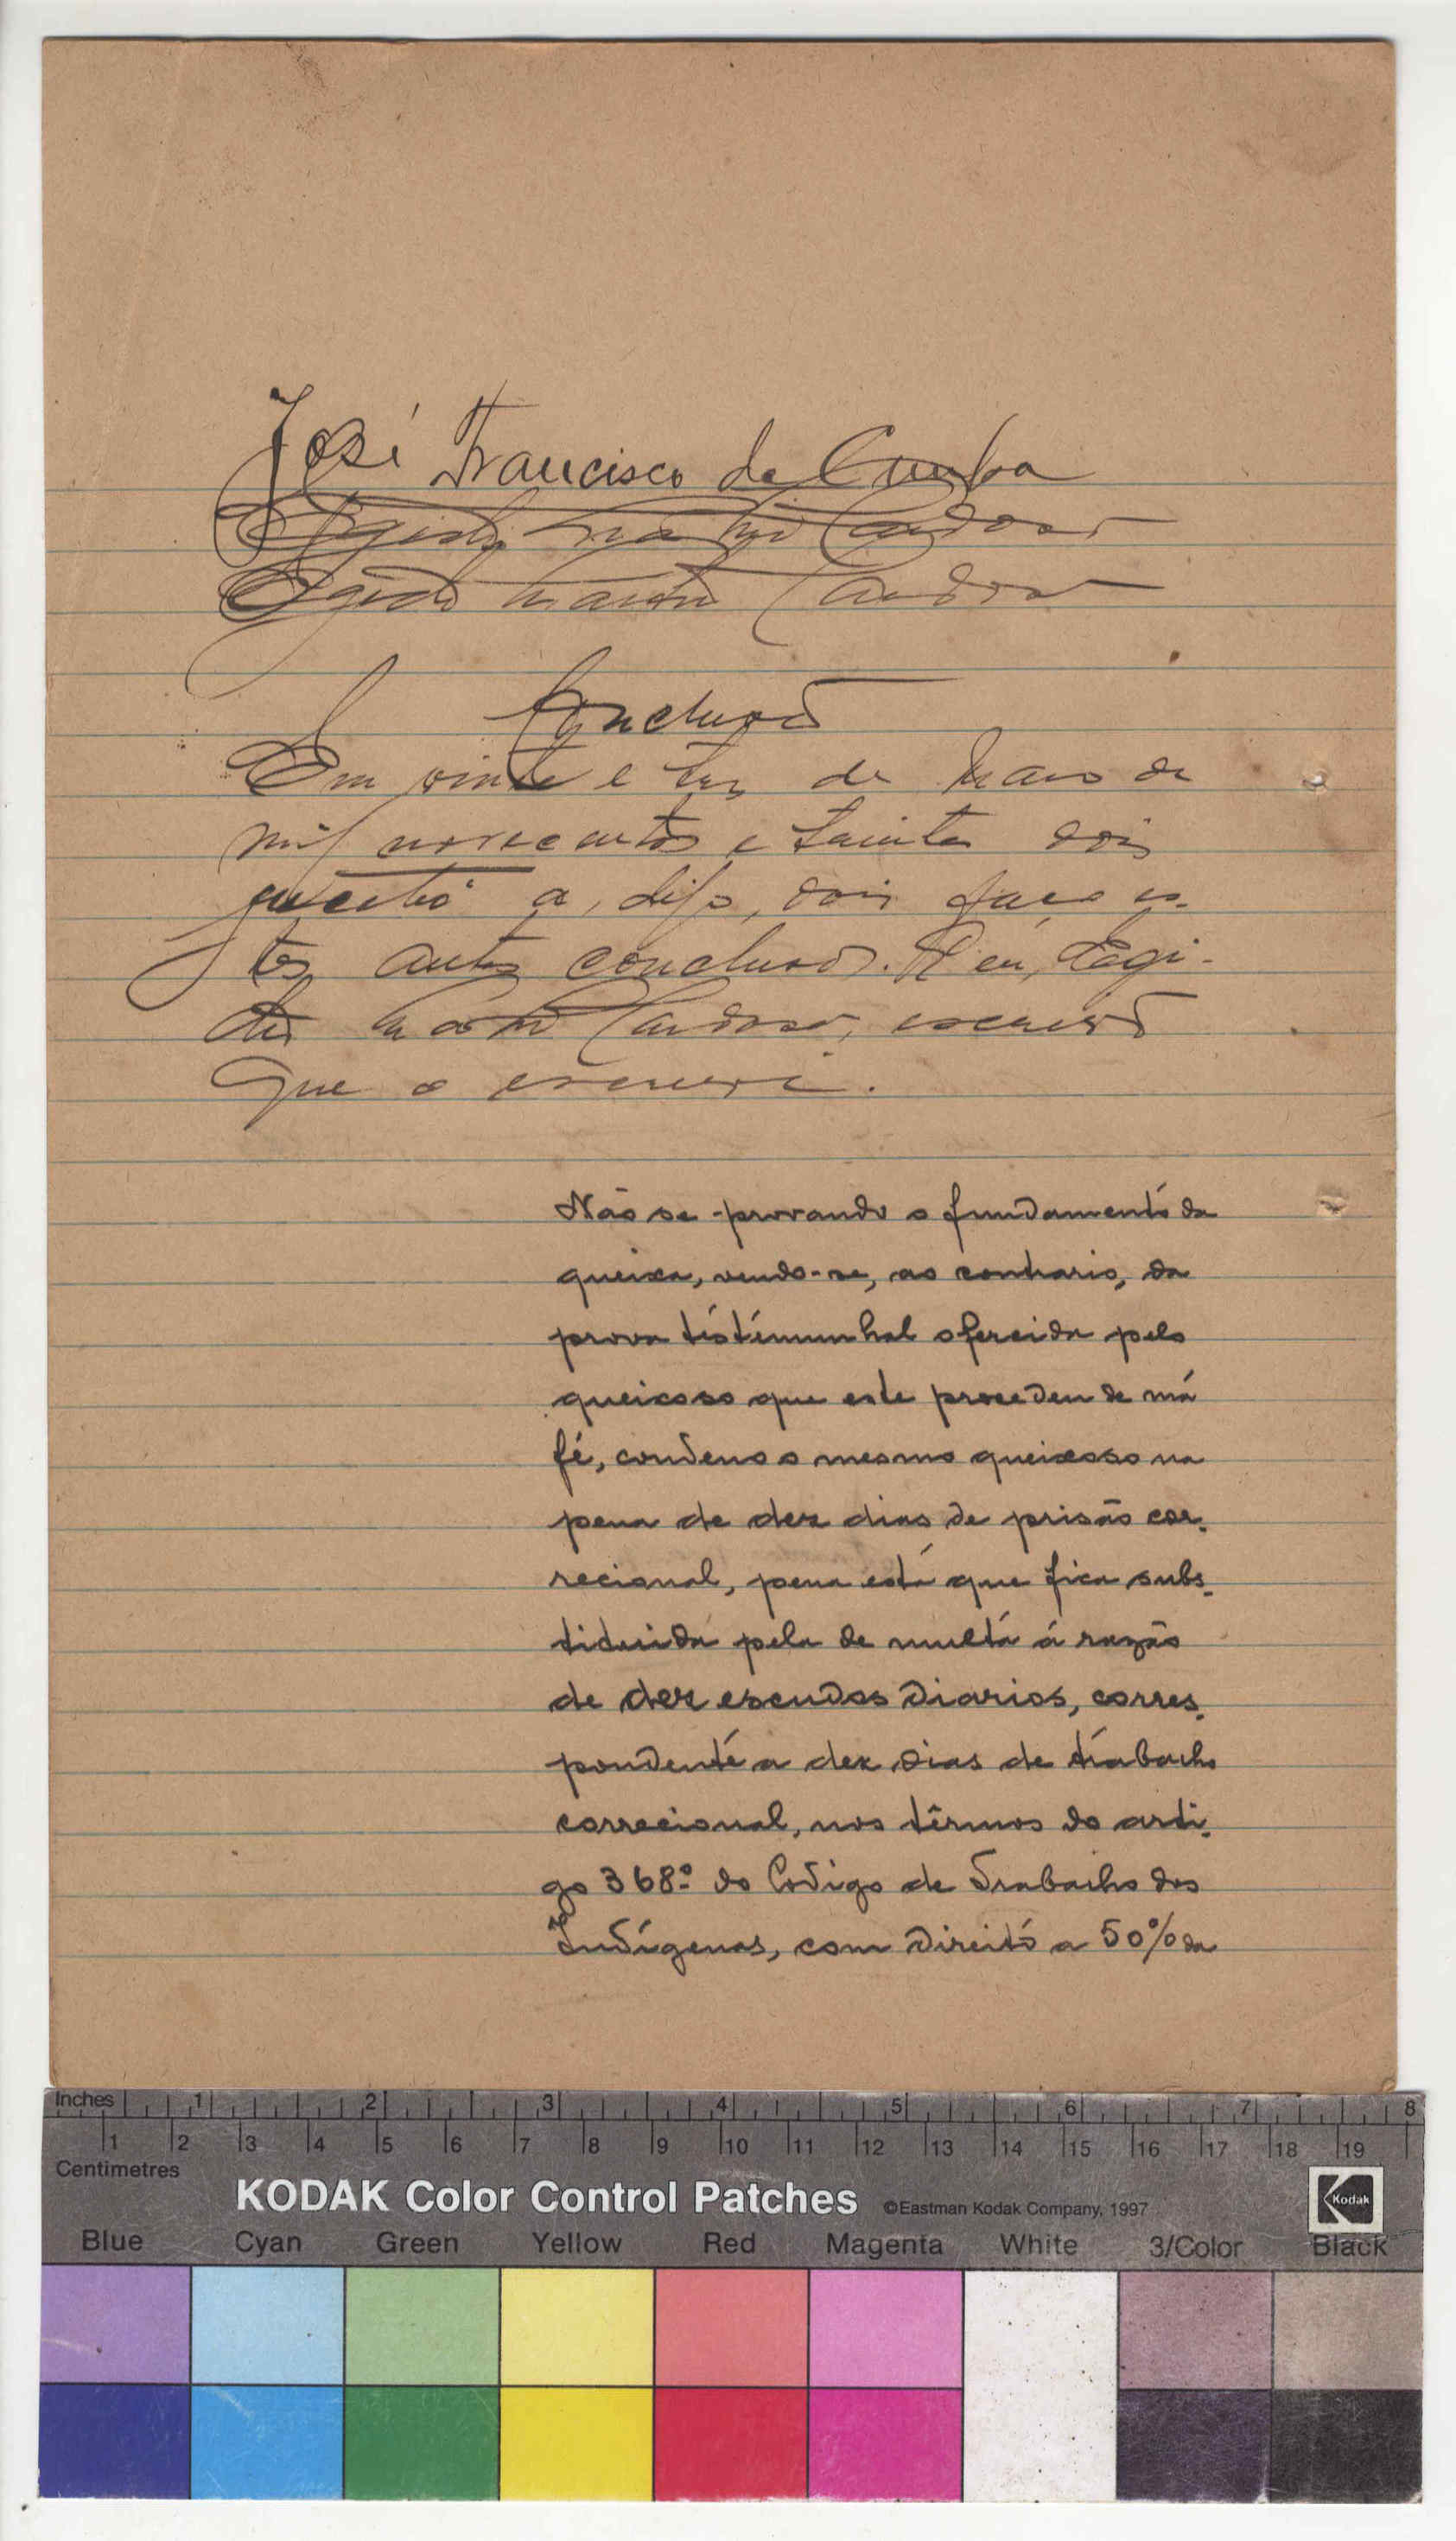 José Francisco da Cunha
Cardoso
Cardoso
Conclusão
Em vinte e tres de Maio de
mil novecentos e trinta dois
a, digo, dois faço es-
tes autos conclusos. E eu, Egi-
dio Cardoso, escrivão
que o escrevi.
Não se provando o fundamento da
queixa, vendo-se, ao contrario, da
prova testemunhal oferecida pelo
queixoso que este procedeu de má
fé, condeno o mesmo queixoso na
pena de dez dias de prisão cor-
recional, pena esta que fica subs-
tituida pela de multa á razão
de dez escudos diarios, corres-
pondente a dez dias de trabalho
correcional, nos têrmos do arti-
go 368º do Codigo de Trabalho dos
Indígenas, com direito a 50% da
Inches 1 2 3 4 5 6 7 8
1 2 3 4 5 6 7 8 9 10 11 12 13 14 15 16 17 18 19
Centimetres
KODAK Color Control Patches ©Eastman Kodak Company, 1997 Kodak
Blue Cyan Green Yellow Red Magenta White 3/Color Black